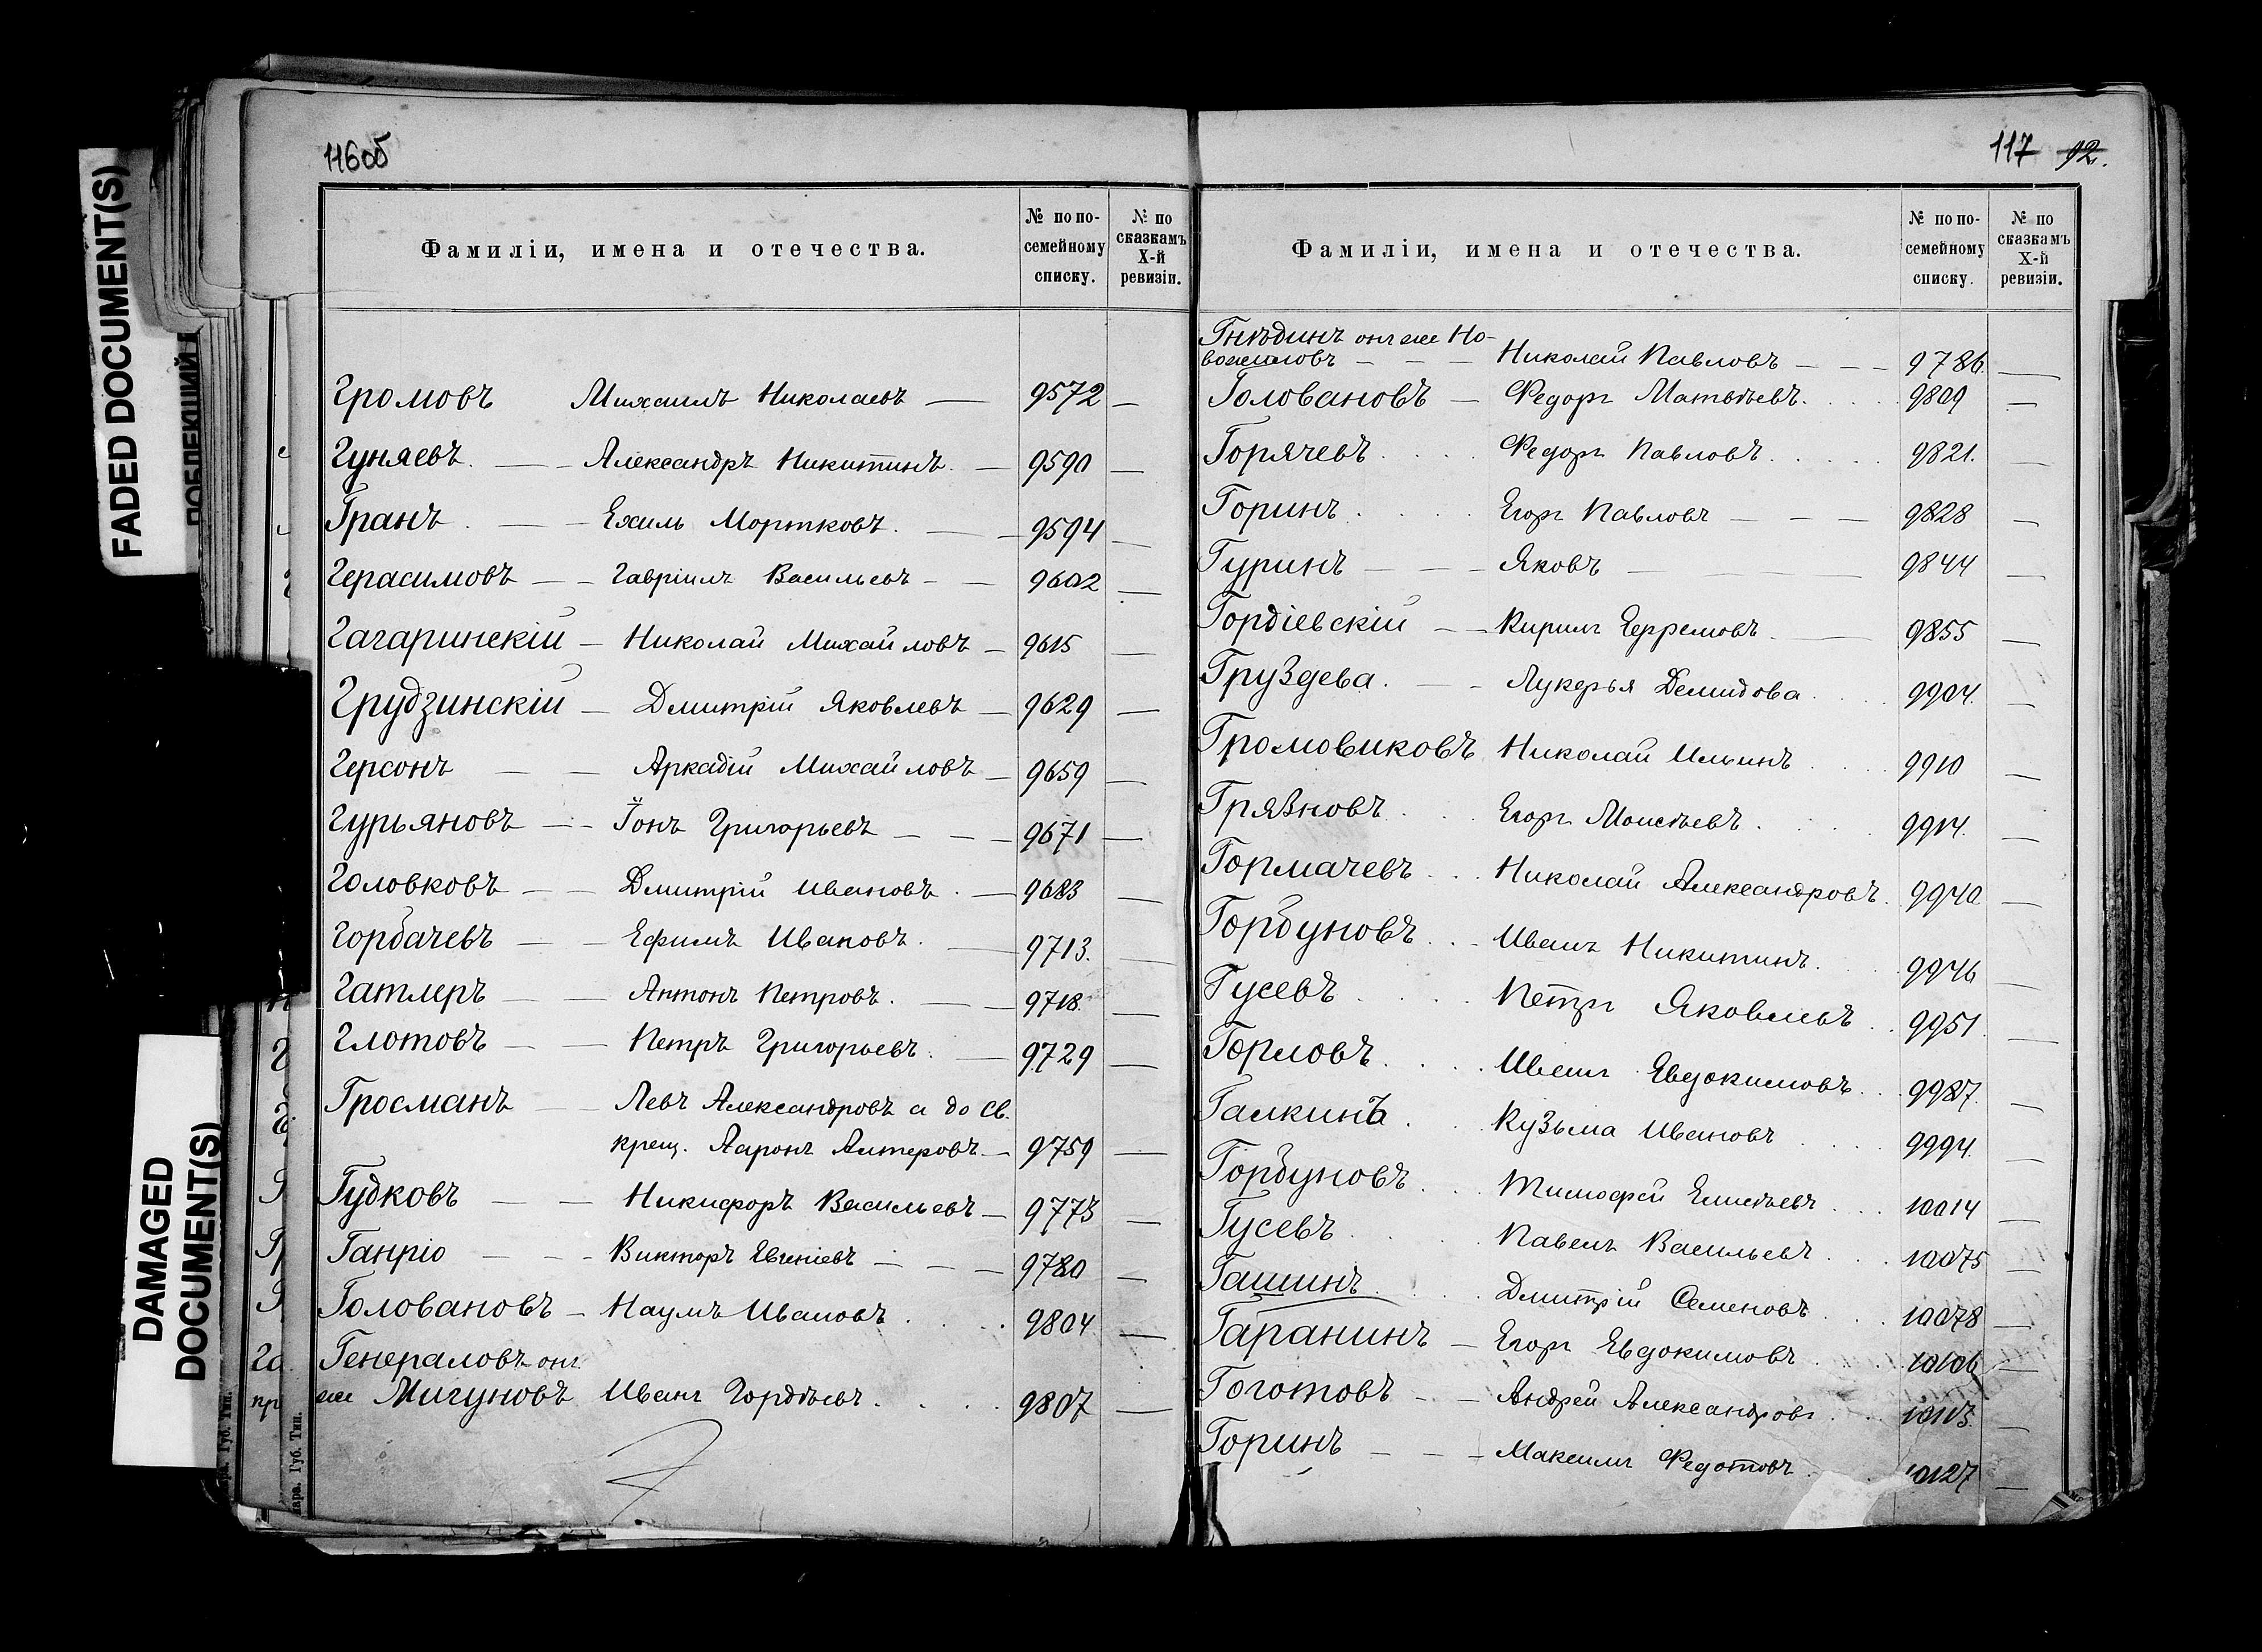 FADED DOCUMENT(S)
DAMAGED
DOCUMENT(S)
116об
Фамиліи, имена и отечества.
№ по по-
семейному
списку.
№ по
сказкамъ
X-й
ревизіи.
Громовъ Михаилъ Николаевъ — 9572 —
Гуняевъ. — — Александръ Никитинъ. — 9590 —
Гранъ . — — Ехиль Мортковъ. — — 9594 —
Герасимовъ — — Гавріилъ Васильевъ — — 9602 —
Гагаринскій — Николай Михайловъ — 9615 —
Грудзинскій — Дмитрій Яковлевъ — 9629 —
Герсонъ — — Аркадій Михайловъ — 9659 —
Гурьяновъ — — Іонъ Григорьевъ — — — 9671 —
Головковъ — — Дмитрій Ивановъ . — 9683 —
Горбачевъ — — Ефимъ Ивановъ. — 9713. —
Гатлеръ — — Антонъ Петровъ. — 9718. —
Глотовъ — — Петръ Григорьевъ. — 9729 —
Гросманъ — — Левъ Александровъ а до Св.
крещ. Ааронъ Алтеровъ — 9759 —
Гудковъ — — Никифоръ Васильевъ — 9773 —
Ганріо — — — Викторъ Евгеніевъ — — — 9780 —
Головановъ — Наумъ Ивановъ . . . 9804 —
Генераловъ онъ
же Мигуновъ Иванъ Гордѣевъ. . . . 9807 —
117 92.
Фамиліи, имена и отечества.
№ по по-
семейному
списку.
№ по
сказкамъ
X-й
ревизіи.
Гнѣдинъ онъ же Но-
вожиловъ — — — Николай Павловъ — — — 9786. —
Головановъ — Федоръ Матвѣевъ. . . . 9809 —
Горячевъ . . . . Федоръ Павловъ . . . . 9821. —
Горинъ . . . . Егоръ Павловъ — — — 9828 —
Гуринъ — — — Яковъ — — 9844 —
Гордіевскій — — Кирилъ Ефремовъ. — 9855 —
Груздева. — — Лукерья Демидова . . . 9904. —
Громовиковъ Николай Ильинъ . . . 9910 —
Грязновъ . . . Егоръ Моисѣевъ . . . . 9914. —
Гормачевъ . . . Николай Александровъ. 9940 —
Горбуновъ . . — Иванъ Никитинъ. . . . 9946 —
Гусевъ . . . . Петръ Яковлевъ . . 9951 —
Горловъ. . . . . Иванъ Евдокимовъ. . . 9987. —
Галкинъ . . . Кузьма Ивановъ . . . . 9994. —
Горбуновъ . . . Тимофей Елисѣевъ . . . 10014 —
Гусевъ . . . . Павелъ Васильевъ . . . 10075 —
Гашинъ. . . . Дмитрій Семеновъ . . . 10078 —
Гаранинъ — Егоръ Евдокимовъ . . . 10106 —
Гоготовъ — — Андрей Александровъ . . . 10113. —
Горинъ — — — Максимъ Федотовъ . . 10127 —